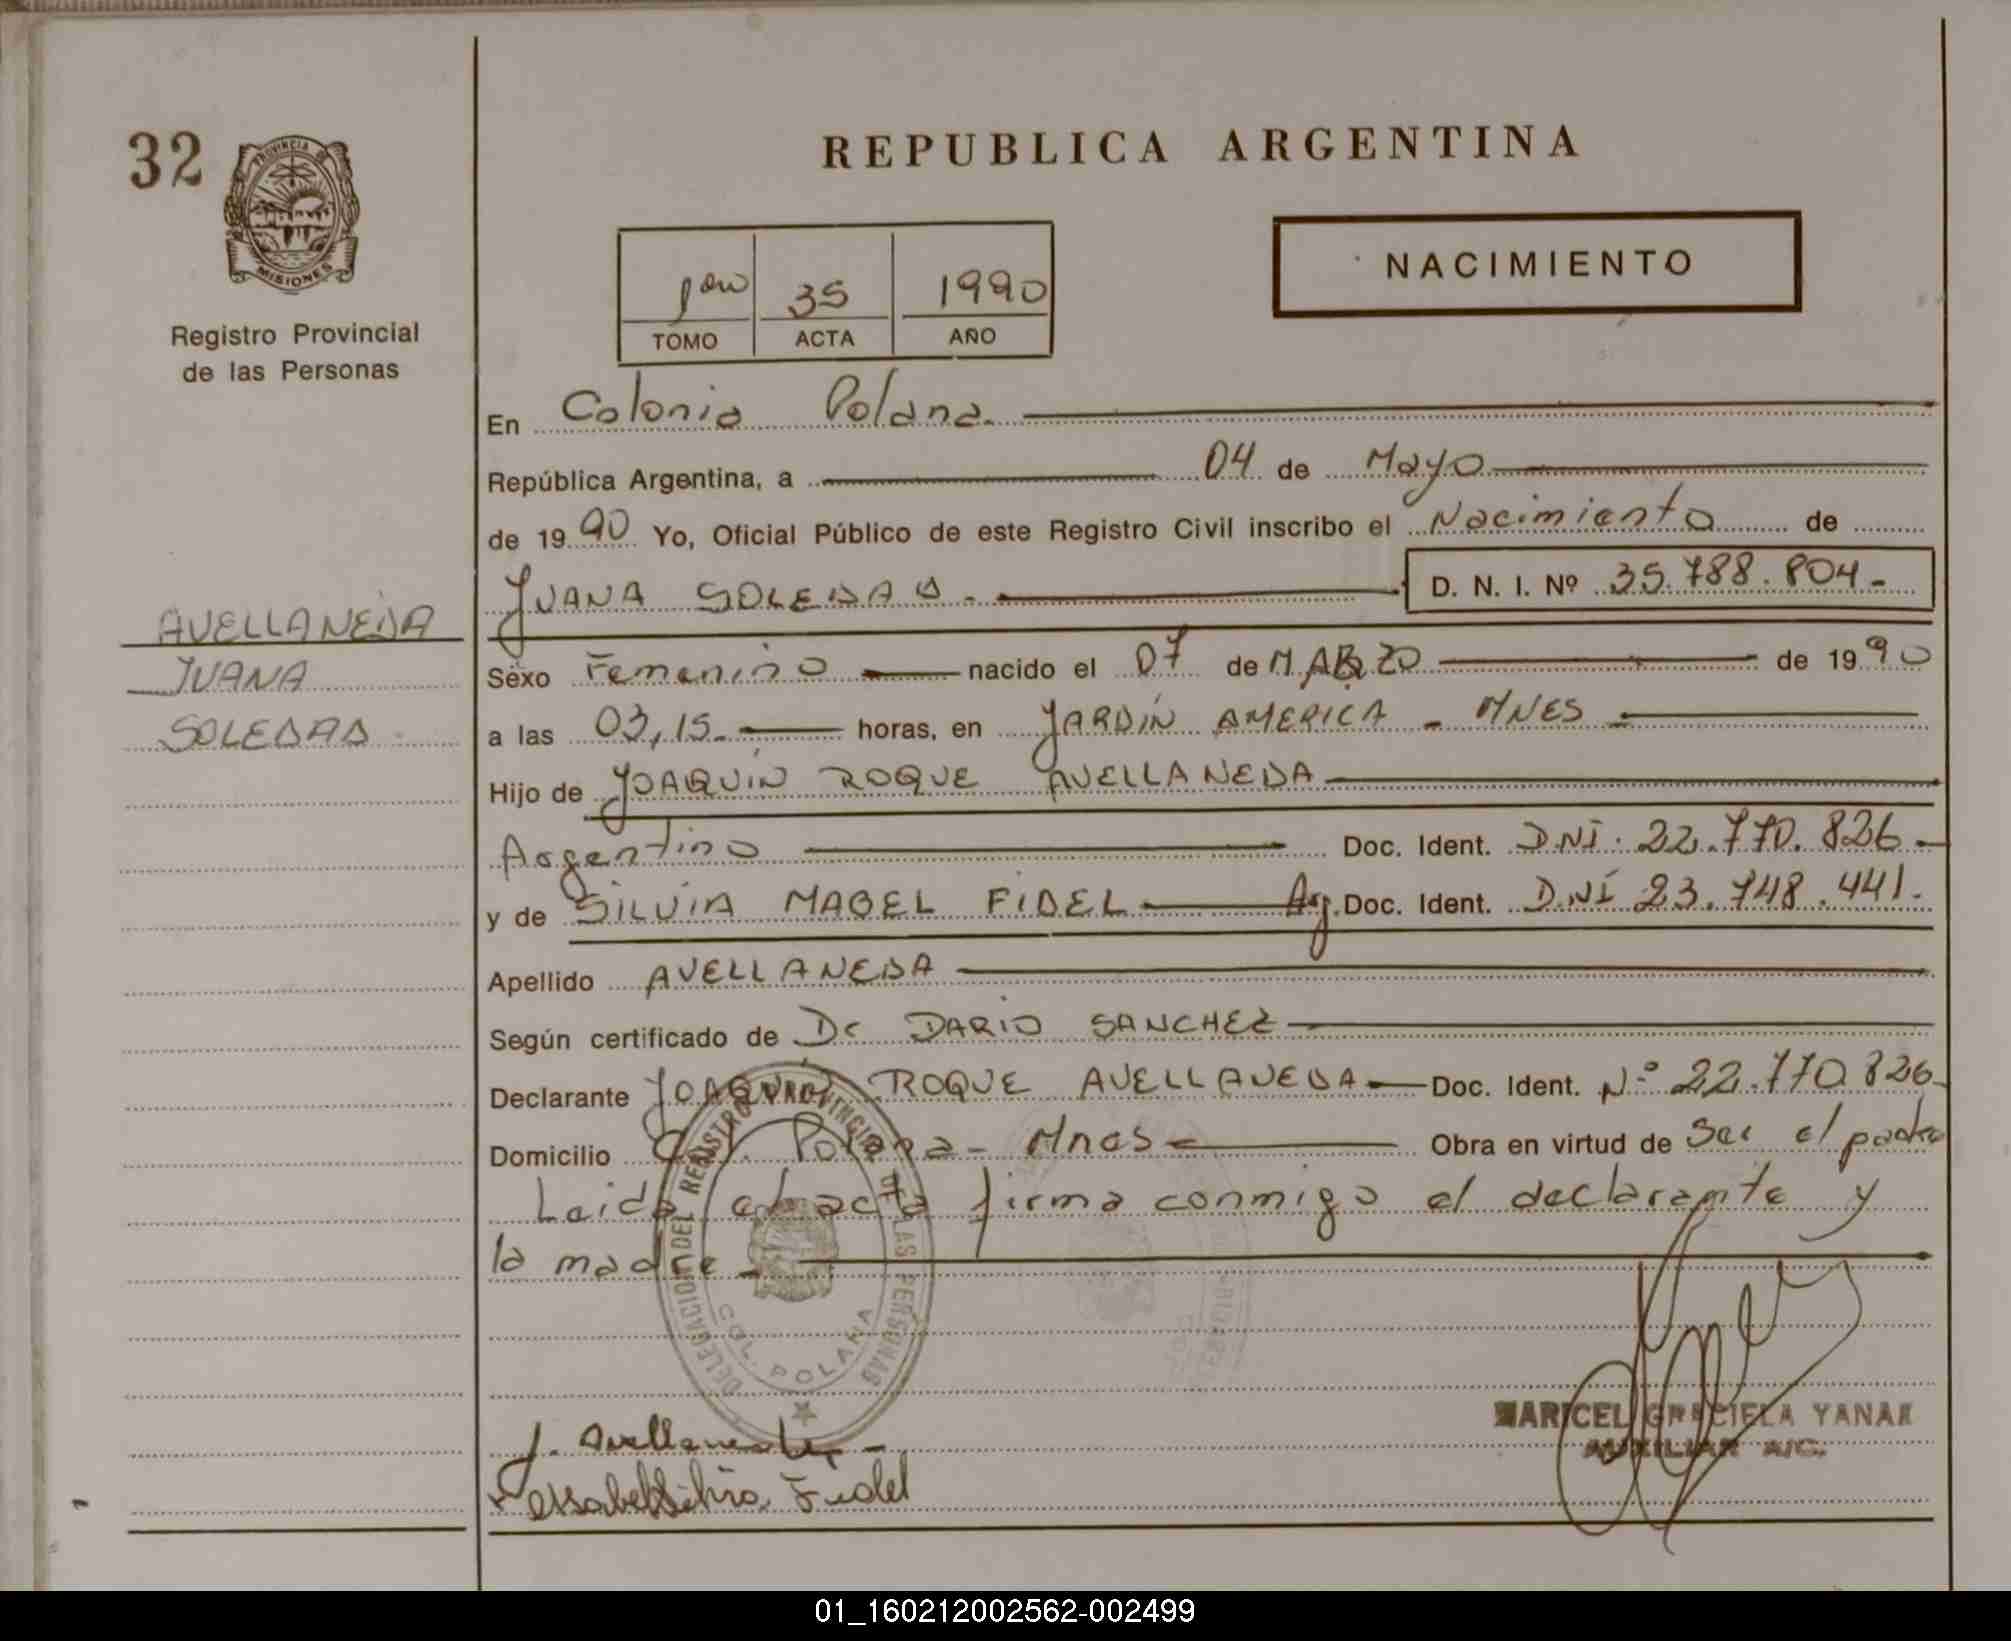 32
PROVINCIA DE
MISIONES
Registro Provincial
de las Personas
AVELLANEDA
JUANA
SOLEDAD.
REPUBLICA ARGENTINA
NACIMIENTO
1ero 35 1990
TOMO ACTA AÑO
En Colonia Polana.
República Argentina, a 04 de Mayo
de 1990 Yo, Oficial Público de este Registro Civil inscribo el Nacimiento de
JUANA SOLEDAD. D. N. I. Nº 35.788.804.-
Sexo Femenino nacido el 07 de MARZO de 1990
a las 03,15. horas, en JARDÍN AMERICA - MNES
Hijo de JOAQUÍN ROQUE AVELLANEDA
Argentino Doc. Ident. DNI. 22.770.826.-
y de SILVIA MABEL FIDEL Arg. Doc. Ident. DNI 23.748.441.
Apellido AVELLANEDA
Según certificado de Dr DARIO SANCHEZ
Declarante JOAQUÍN ROQUE AVELLANEDA Doc. Ident. Nº 22.770.826-
Domicilio Col. Polana - Mnes Obra en virtud de Ser el padre
Leida el acta firma conmigo el declarante y
la madre -
DELEGACION DEL REGISTRO PROVINCIAL DE LAS PERSONAS
COL. POLANA
J. Avellaneda
Mabel Silvia Fidel
MARICEL GRACIELA YANAK
AUXILIAR A/C.
01_160212002562-002499